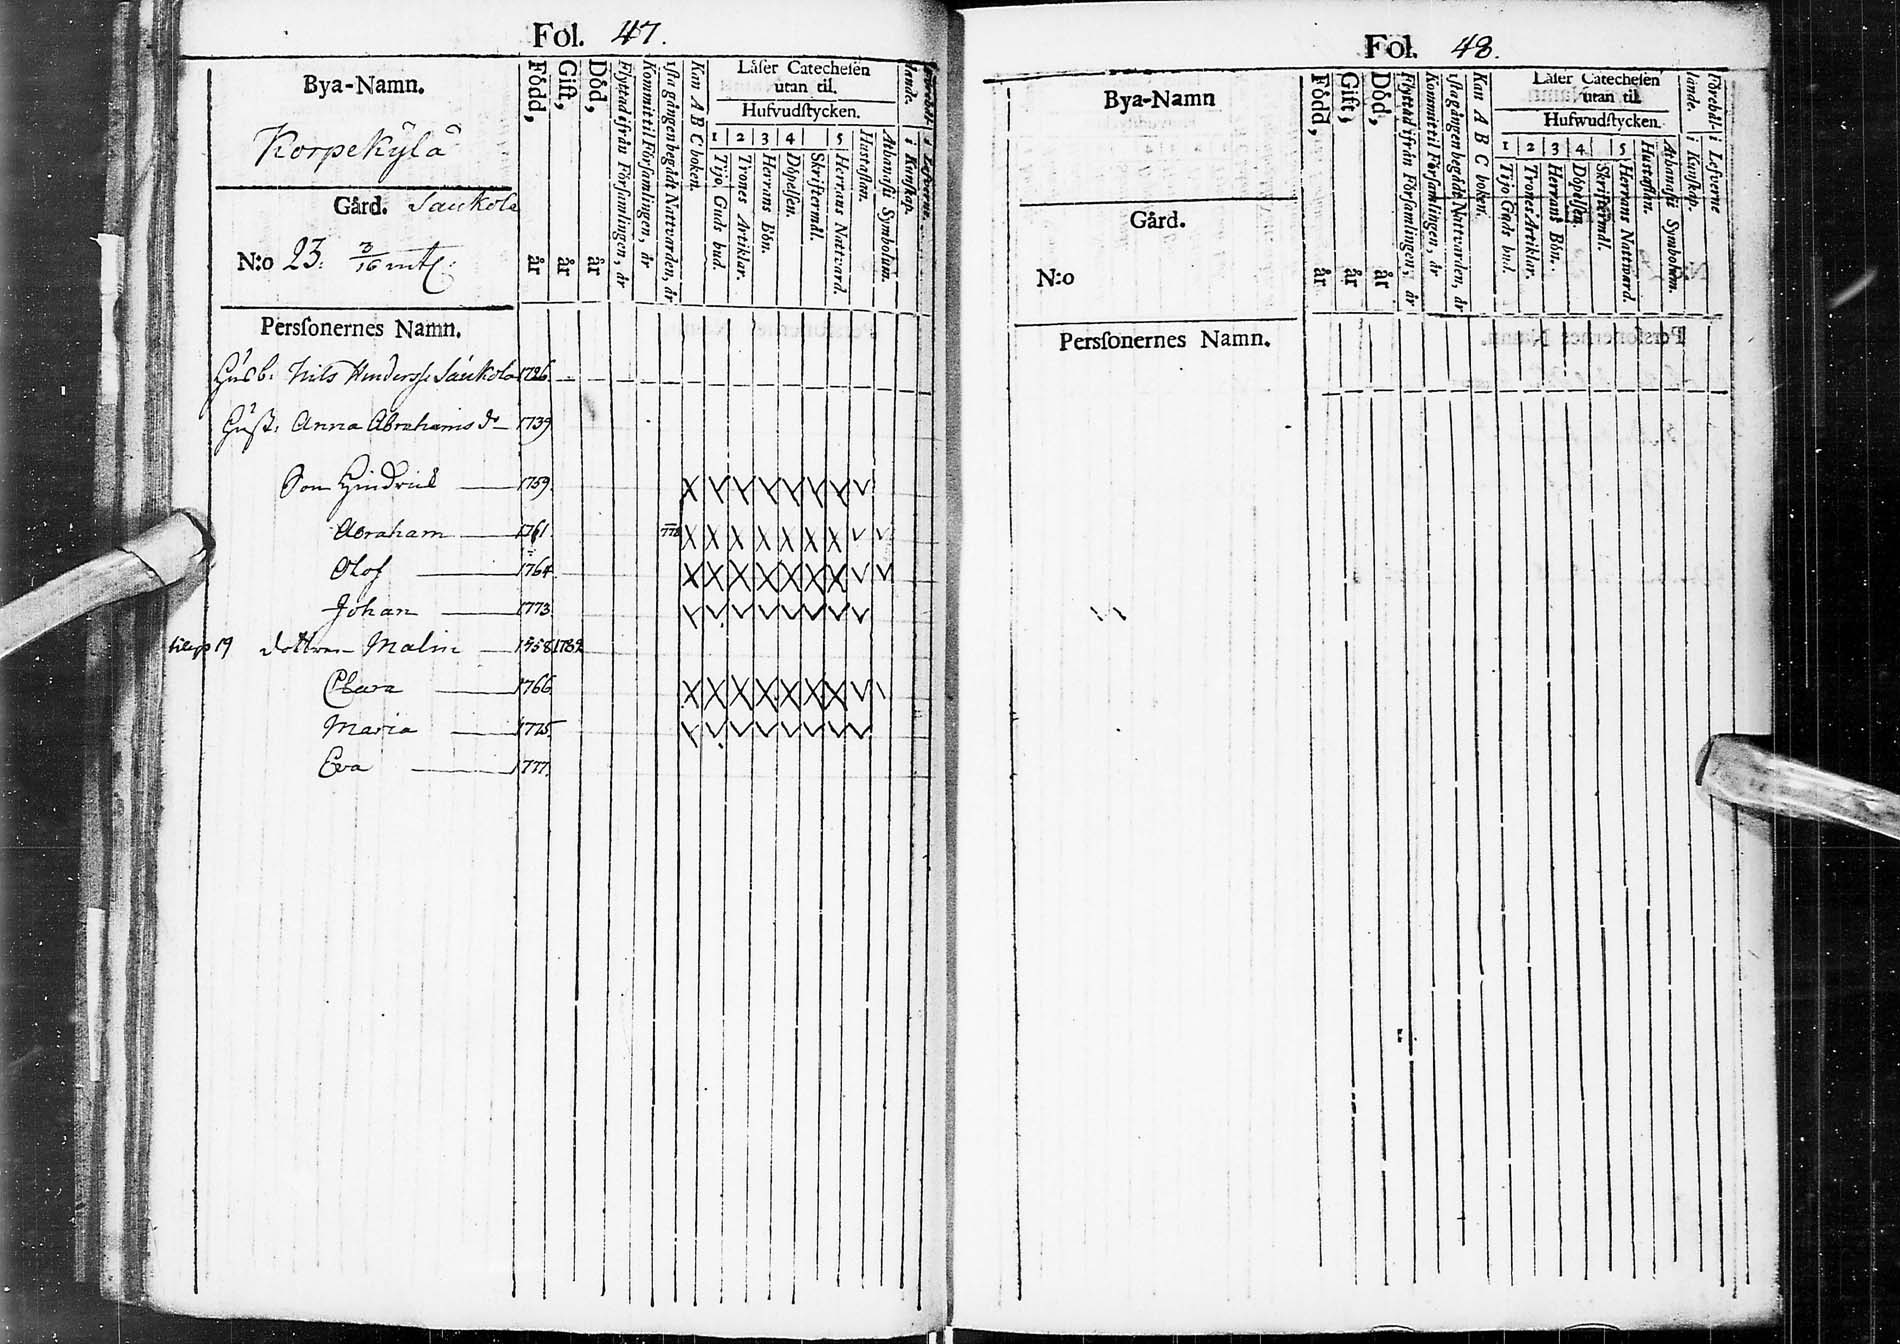 Fol. 47.
Bya-Namn.
Korpekylä
Gård. Saukola
N:o 23. 3/16 mtl.
Född, år
Gift, år
Död, år
Flyttad ifrån Församlingen, år
Kommit til Församlingen, år
1sta gången begådt Nattvarden, år
Kan A B C boken.
Låser Catechesen
utan til.
Hufvudstycken.
1 2 3 4 5
Tijo Guds bud.
Trones Artiklar.
Herrans Bön.
Döpelsen.
Skriftermål.
Herrans Nattvard.
Hustaflan.
Athanasii Symbolum.
i Kunskap.
i Lefverne.
Personernes Namn.
Husb. Nils Hinderss. Saukola 1726
Hust. Anna Abrahams dr 1739
Son Hindrich 1759
Abraham 1761
Olof 1764
Johan 1773
19 dottren Malin 1758 1782
Clara 1766
Maria 1775
Eva 1777
Fol. 48.
Bya-Namn
Gård.
N:o
Född, år
Gift, år
Död, år
Flyttad ifrån Församlingen, år
Kommit til Församlingen, år
1sta gången begådt Nattvarden, år
Kan A B C boken.
Låser Catechesen
utan til
Hufwudstycken.
1 2 3 4 5
Tijo Guds bud.
Trones Artiklar.
Herrans Bön.
Döpelsen.
Skriftermål.
Herrans Nattward.
Hustaflan.
Athanasii Symbolum.
Förehållande. i Kunskap.
i Lefverne
Personernes Namn.